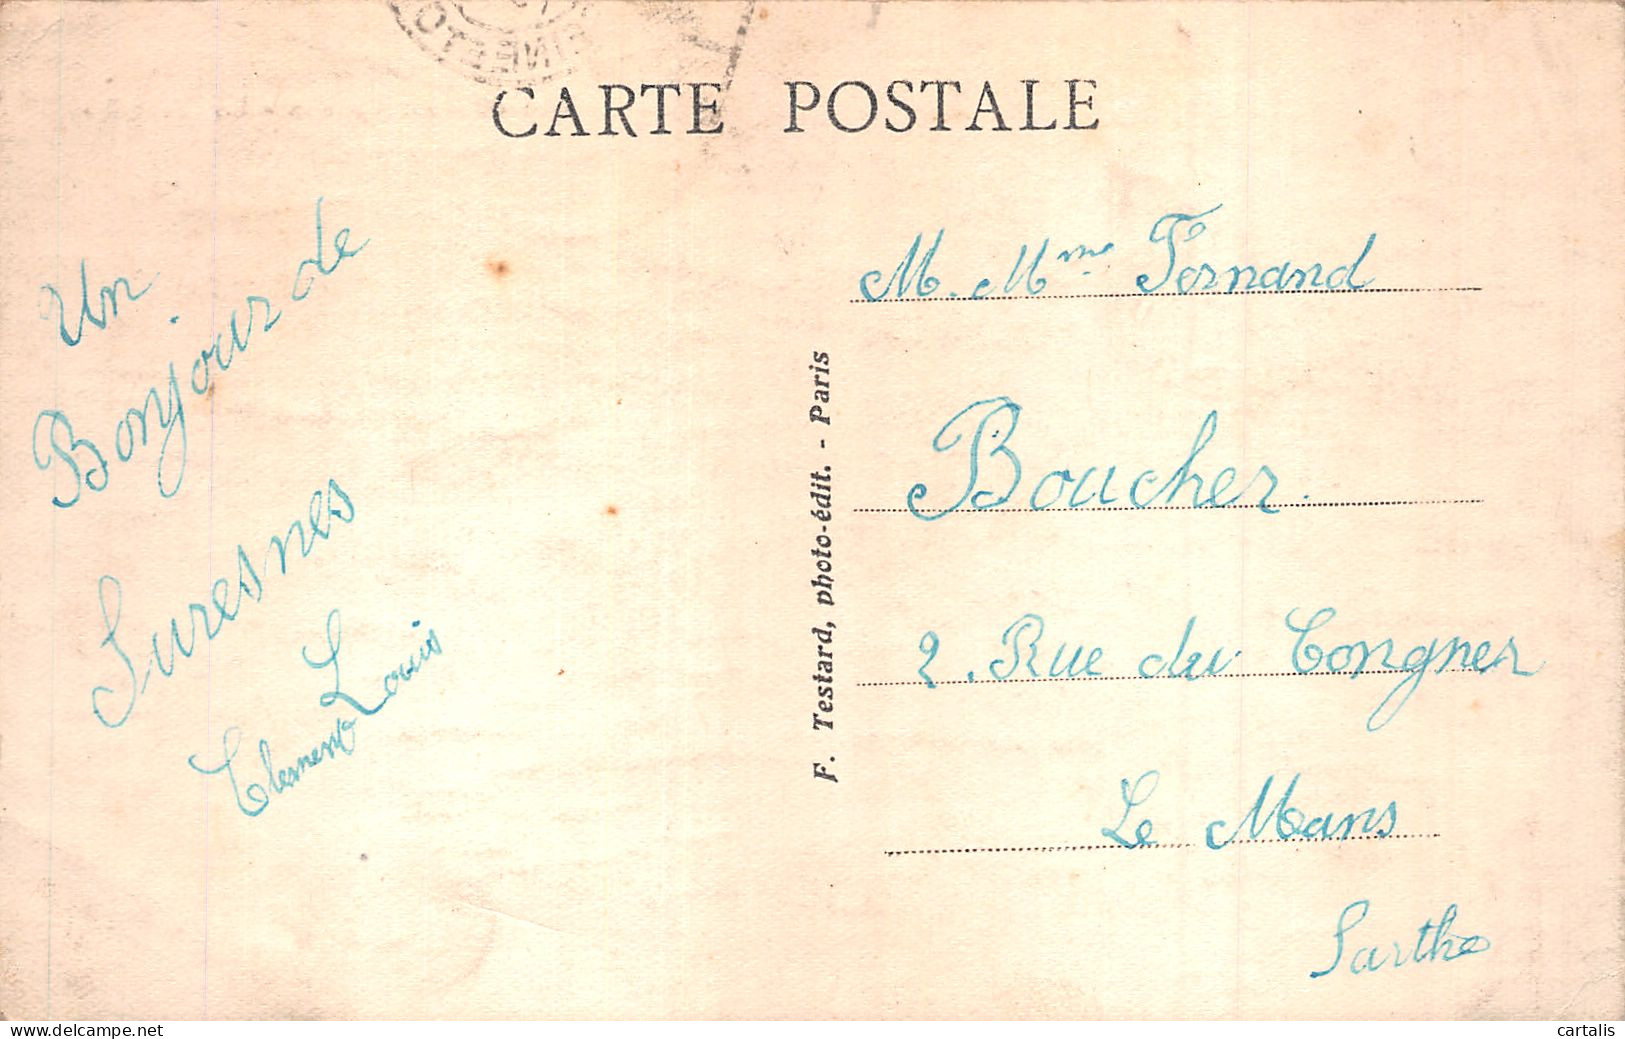 CARTE POSTALE
Un
Bonjour de
Suresnes
Clement Louis
F. Testard, photo-édit. - Paris
M. Mme Fernand
Boucher.
2. Rue du Congner
Le Mans
Sarthe
delcampe.net
cartalis